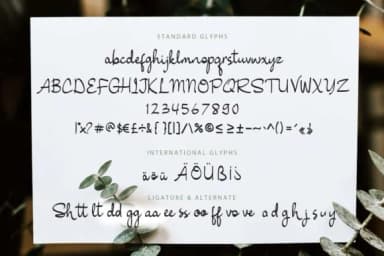 STANDARD GLYPHS
abcdefghijklmnopqrstuvwxyz
ABCDEFGHIJKLMNOPQRSTUVWXYZ
1234567890
INTERNATIONAL GLYPHS
äöü ÄÖÜßiS
LIGATURE & ALTERNATE
Sh tt lt dd gg aa ee ss oo ff vo ve a d g h j s u y